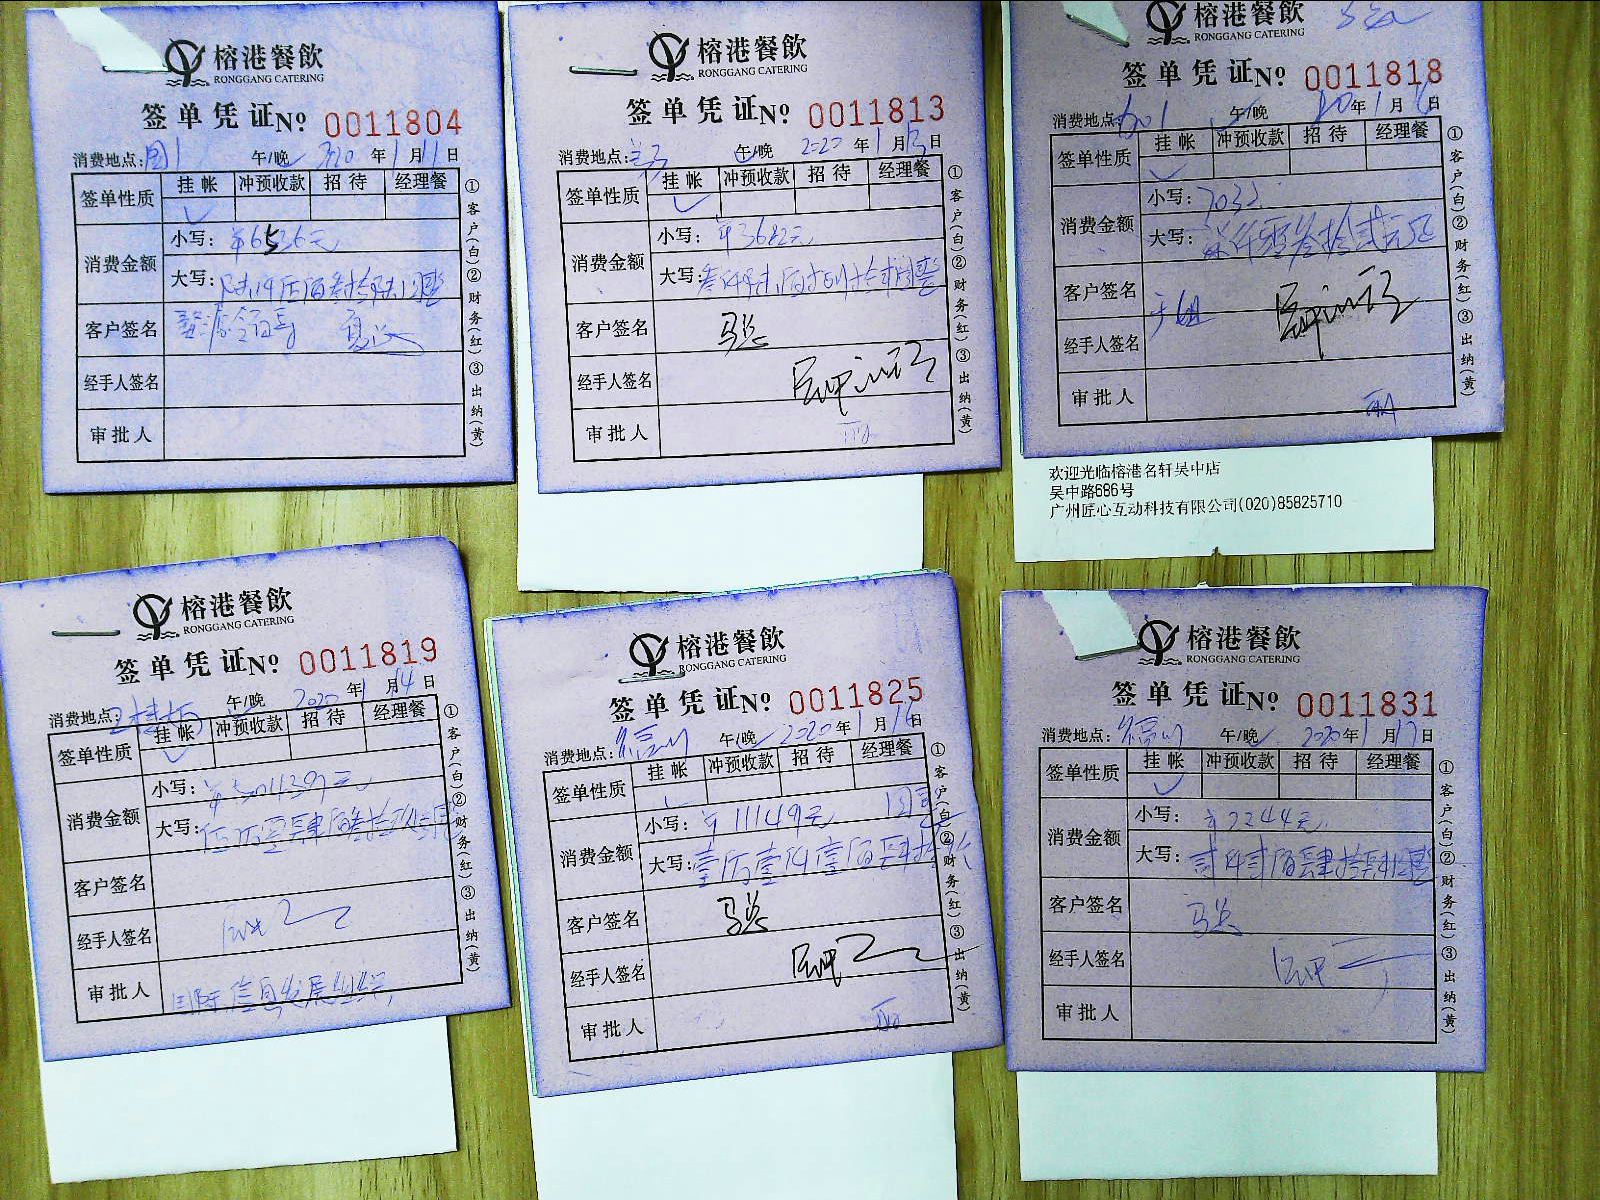 榕港餐飲
RONGGANG CATERING
签单凭证№ 0011804
消费地点: 午/晚 2020年1月11日
签单性质 挂帐 冲预收款 招待 经理餐
消费金额 小写: ¥6536元
大写: 陆仟伍佰叁拾陆元整
客户签名
经手人签名
审批人
①客户(白)②财务(红)③出纳(黄)
榕港餐飲
RONGGANG CATERING
签单凭证№ 0011813
消费地点: 午/晚 2020年1月13日
签单性质 挂帐 冲预收款 招待 经理餐
消费金额 小写: ¥3682元
大写: 叁仟陆佰捌拾贰元整
客户签名
经手人签名
审批人
①客户(白)②财务(红)③出纳(黄)
榕港餐飲
RONGGANG CATERING
签单凭证№ 0011818
消费地点: 午/晚 年1月 日
签单性质 挂帐 冲预收款 招待 经理餐
消费金额 小写: 7032
大写: 柒仟零叁拾贰元正
客户签名
经手人签名
审批人
①客户(白)②财务(红)③出纳(黄)
欢迎光临榕港名轩吴中店
吴中路686号
广州匠心互动科技有限公司(020)85825710
榕港餐飲
RONGGANG CATERING
签单凭证№ 0011819
消费地点: 午/晚 2020年1月14日
签单性质 挂帐 冲预收款 招待 经理餐
消费金额 小写:
大写:
客户签名
经手人签名
审批人 国际信息发展组织
①客户(白)②财务(红)③出纳(黄)
榕港餐飲
RONGGANG CATERING
签单凭证№ 0011825
消费地点: 午/晚 2020年1月16日
签单性质 挂帐 冲预收款 招待 经理餐
消费金额 小写: ¥11149元
大写: 壹万壹仟壹佰肆拾玖
客户签名
经手人签名
审批人
①客户(白)②财务(红)③出纳(黄)
榕港餐飲
RONGGANG CATERING
签单凭证№ 0011831
消费地点: 午/晚 2020年1月17日
签单性质 挂帐 冲预收款 招待 经理餐
消费金额 小写: ¥2244元
大写: 贰仟贰佰肆拾肆元整
客户签名
经手人签名
审批人
①客户(白)②财务(红)③出纳(黄)